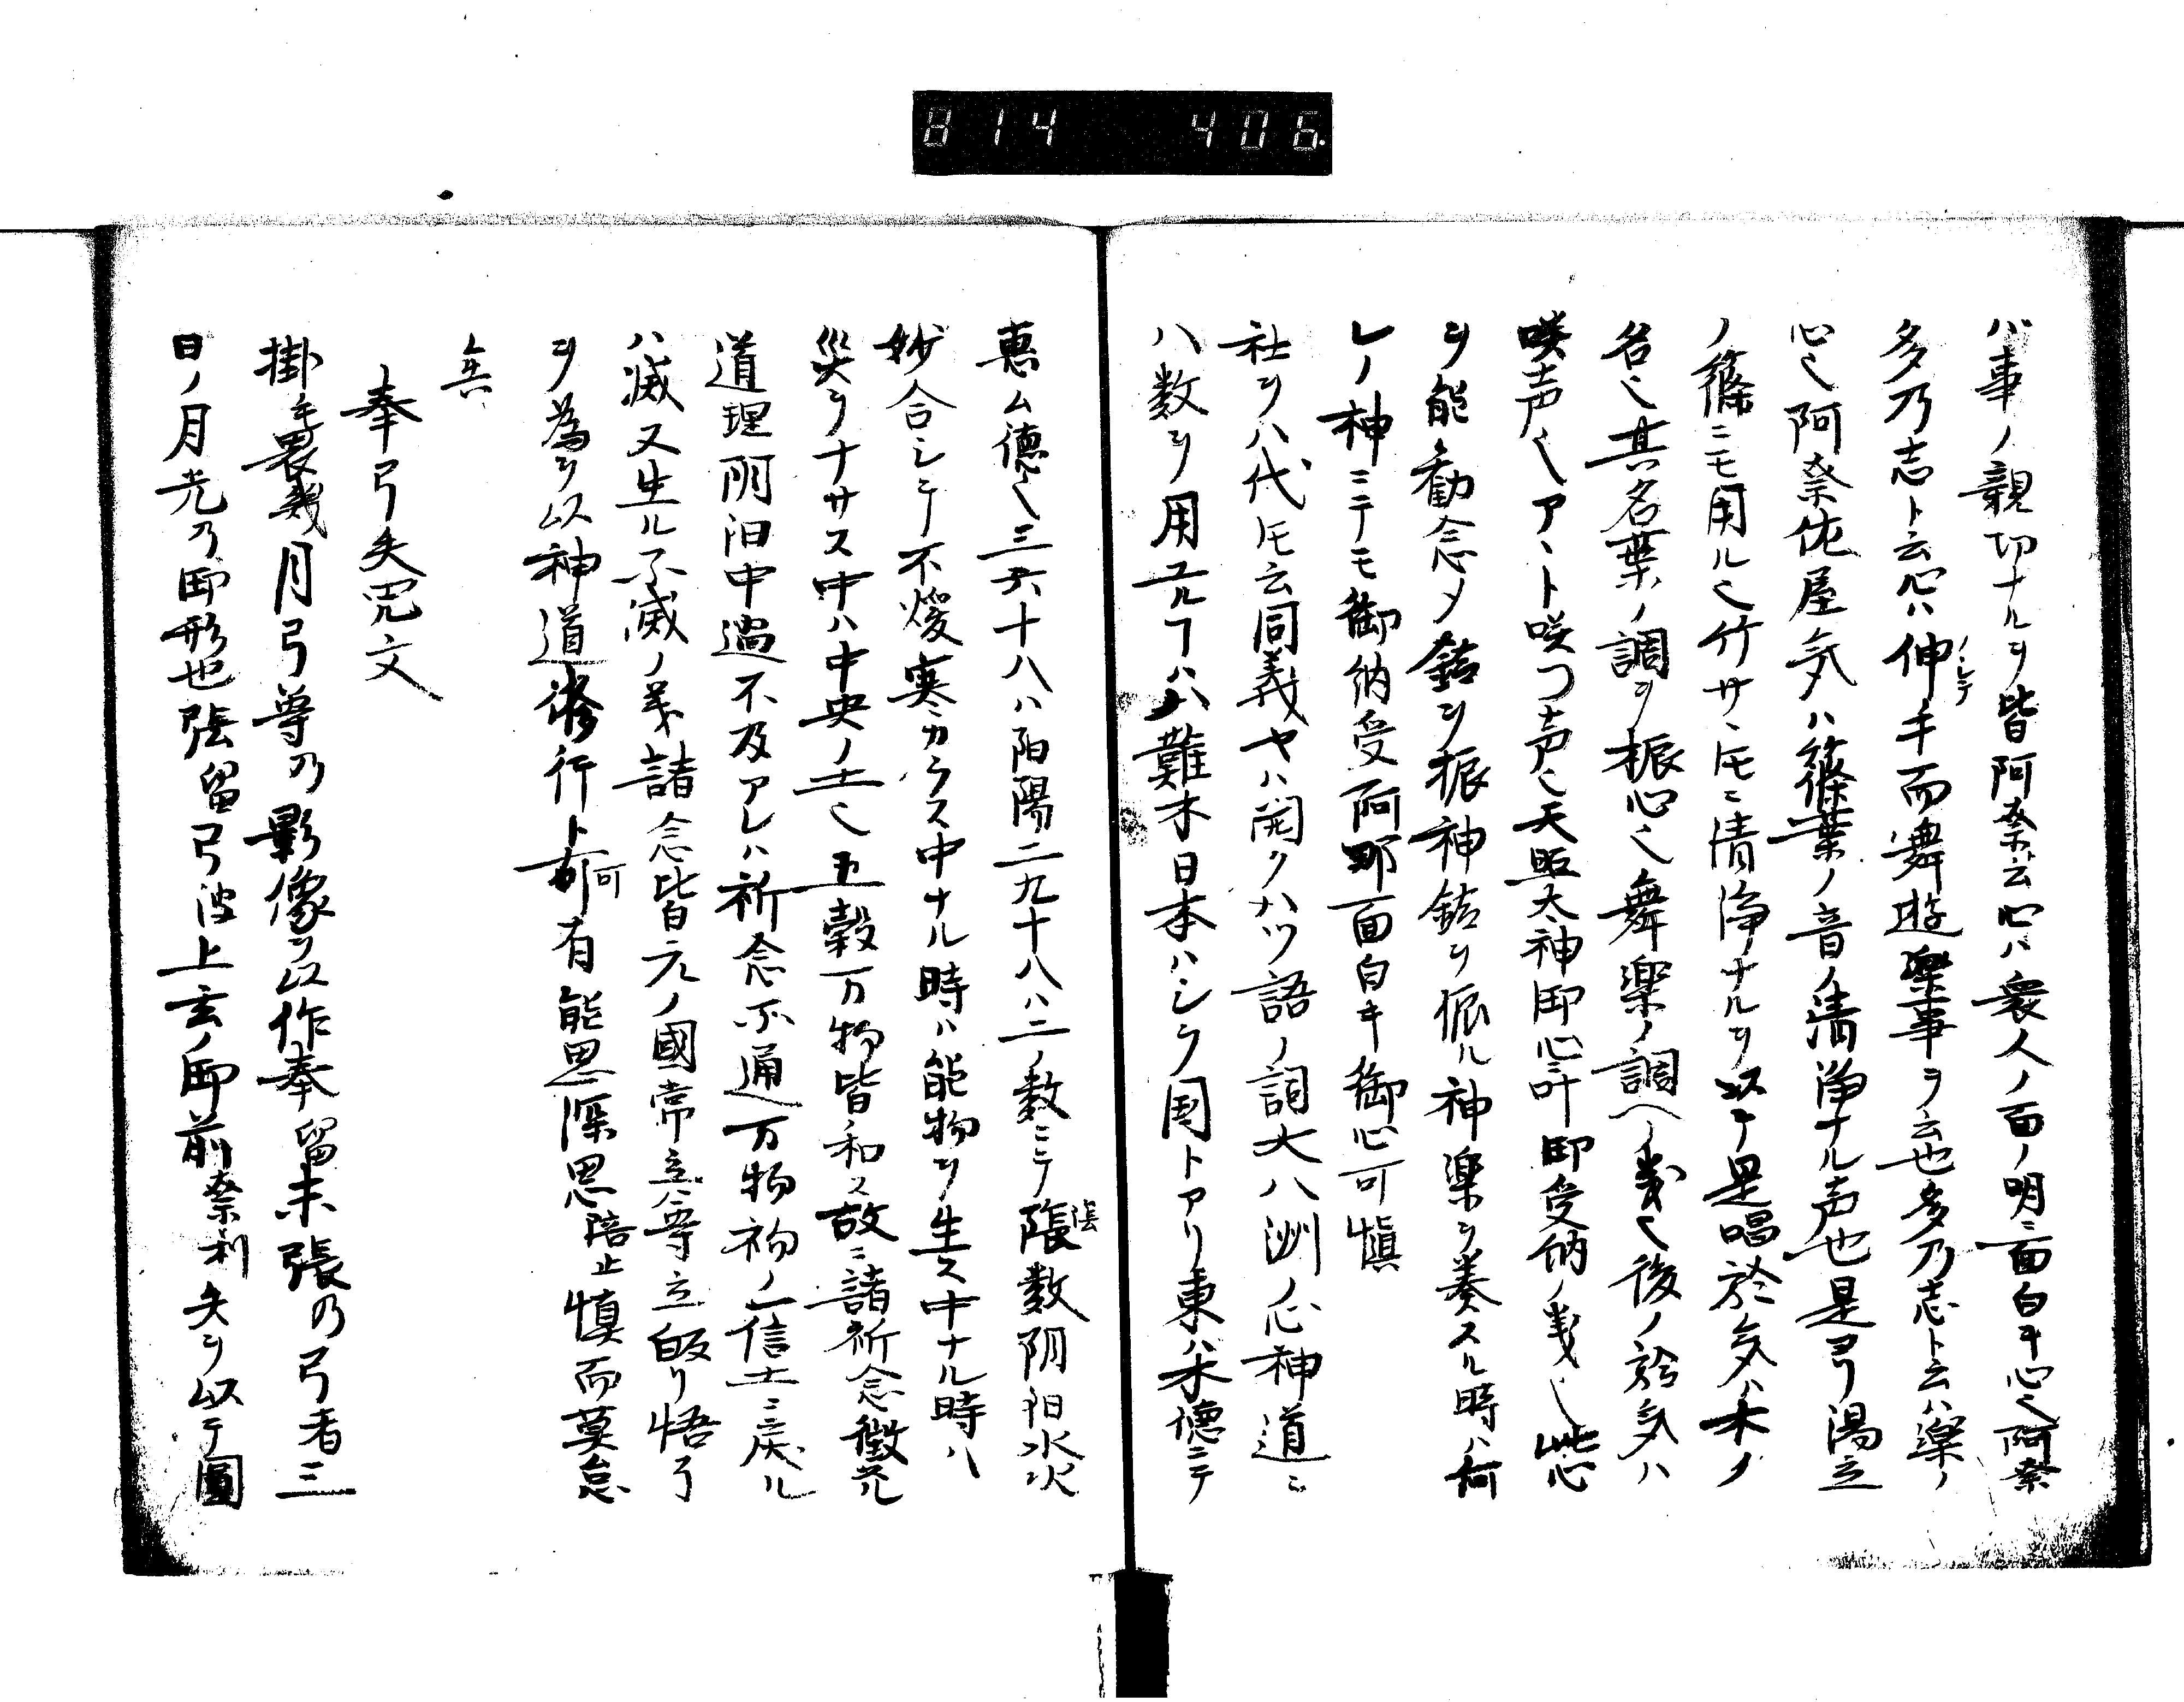 814 406.
バ事ノ親切ナルヲ皆阿奈云心ハ衆人ノ面ノ明ニ面白キ心也阿奈
多乃志ト云心ハ伸手而舞遊楽事ヲ云也多乃志ト云ハ楽ノ
ノシテ
心也阿奈佐屋気ハ篠葉ノ音ノ清浄ナル声也是ヨリ湯立
ノ篠ニモ用ル也竹サヽ𪜈ニ清浄ナルヲ以テ是唱於気ハ木ノ
名也其名葉ノ調ヲ振心也舞楽ノ調ヘノ義也後ノ於気ハ
咲声也アヽト咲つ声也天照太神御心ニ叶御受納ノ義也此心
ヲ能勧念メ鈴ヲ振神鈴ヲ振ル神楽ヲ奏スル時ハ何
レノ神ニテモ御納受阿那面白キ御心可慎
社ヲハ代𪜈云同義ヤハ開クハツ語ノ詞大八洲ノ心神道ニ
八数ヲ用ユルヿハ八難木日本ハシラ国トアリ東ハ木徳ニテ
恵ム徳也三六十八ハ陽二九十八ハ二ノ数ニテ陰数阴阳水火
陰
妙合シテ不煖寒カラス中ナル時ハ能物ヲ生ス中ナル時ハ
災ヲナサス中ハ中央ノ土也五穀万物皆和ス故ニ諸祈念徴元
道理阴阳中過不及アレハ祈念不通万物初ノ一信土ニ戻ル
ハ滅又生ル不滅ノ義諸念皆元ノ國常立尊立皈リ悟了
ヲ為ヲ以神道修行ト可有能思深思陪止慎而莫怠
矣
奉弓矢咒文
掛毛畏幾月弓尊乃影像ヲ以作奉留未張乃弓者三
日ノ月光乃御形也張留弓波上玄ノ御前奈利矢ヲ以テ圓